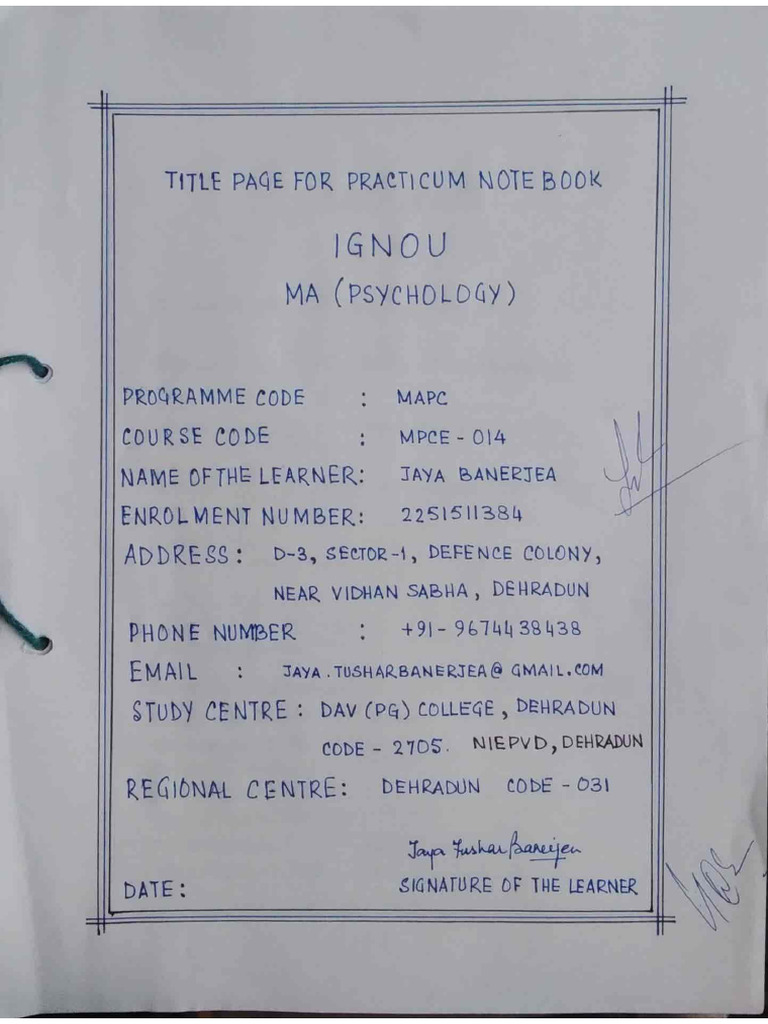 TITLE PAGE FOR PRACTICUM NOTE BOOK
IGNOU
MA (PSYCHOLOGY)
PROGRAMME CODE : MAPC
COURSE CODE : MPCE - 014
NAME OF THE LEARNER: JAYA BANERJEA
ENROLMENT NUMBER: 2251511384
ADDRESS: D-3, SECTOR-1, DEFENCE COLONY,
NEAR VIDHAN SABHA, DEHRADUN
PHONE NUMBER : +91-9674438438
EMAIL : JAYA.TUSHARBANERJEA@GMAIL.COM
STUDY CENTRE: DAV (PG) COLLEGE, DEHRADUN
CODE - 2705. NIEPVD, DEHRADUN
REGIONAL CENTRE: DEHRADUN CODE - 031
Jaya Tushar Banerjea
DATE: SIGNATURE OF THE LEARNER